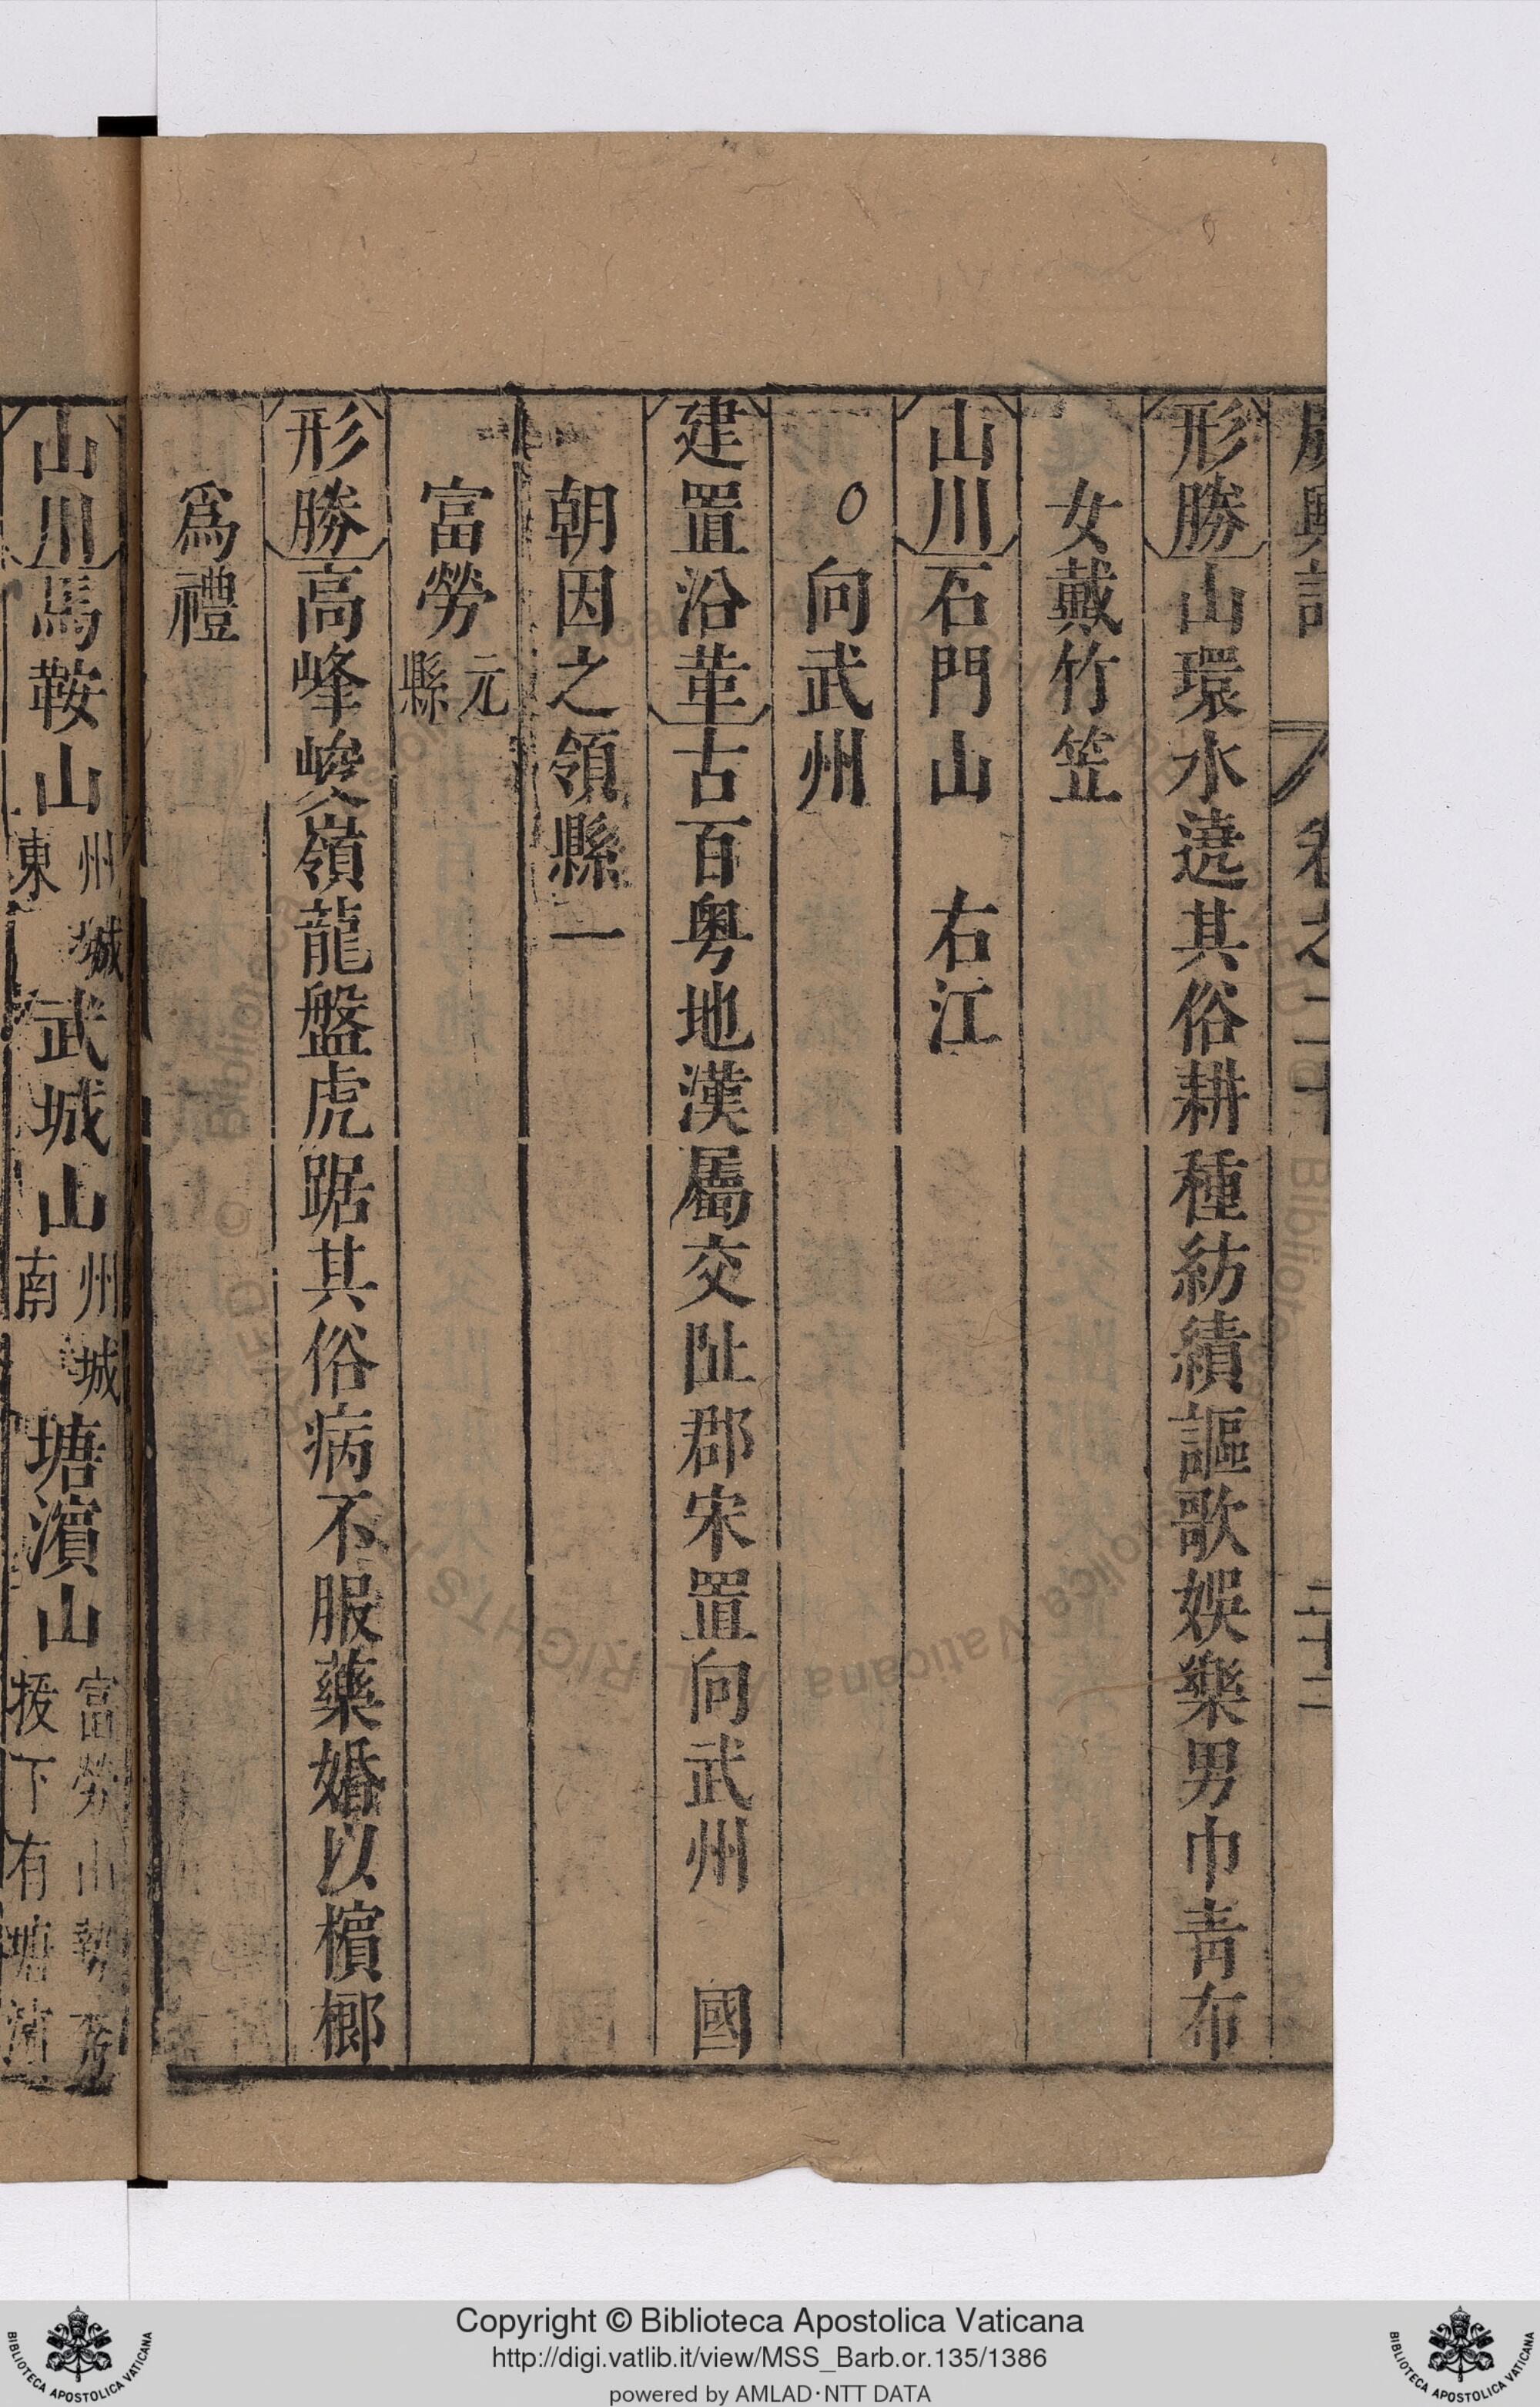 廣輿記 卷之二十 二十二
形勝山環水遶其俗耕種紡績謳歌娛樂男巾靑布
女戴竹笠
山川石門山 右江
○向武州
建置沿革古百粤地漢屬交阯郡宋置向武州 國
朝因之領縣一
富勞元縣
形勝高峰峻嶺龍盤虎踞其俗病不服藥婚以檳榔
爲禮
山川馬鞍山州城東武城山州城南塘濵山富勞山勢下有塘濵
Copyright © Biblioteca Apostolica Vaticana
http://digi.vatlib.it/view/MSS_Barb.or.135/1386
powered by AMLAD·NTT DATA
BIBLIOTECA APOSTOLICA VATICANA
BIBLIOTECA APOSTOLICA VATICANA